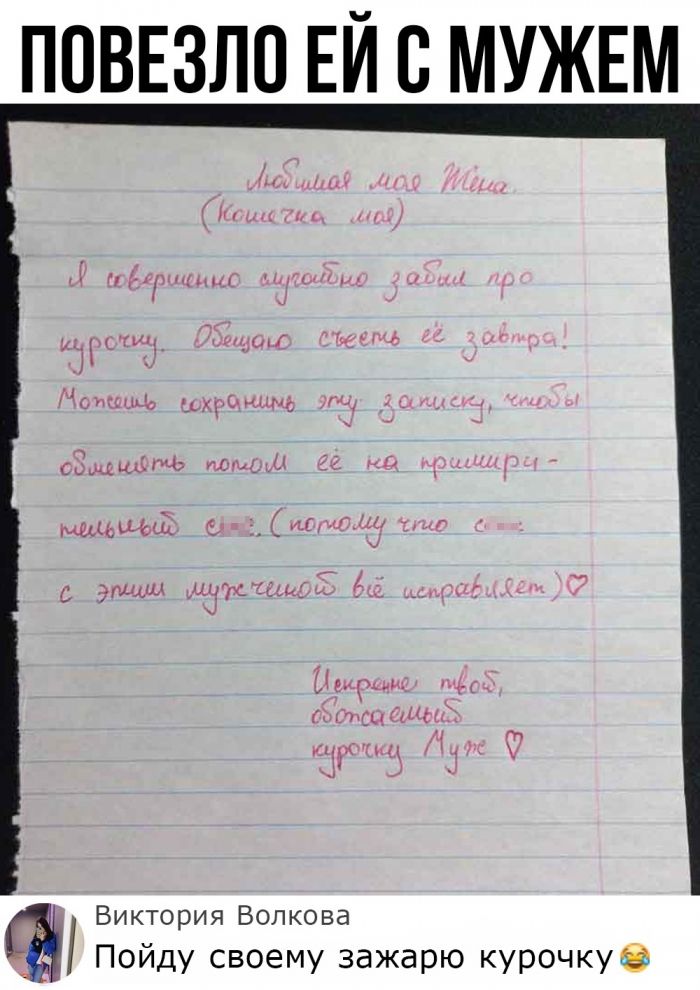 ПОВЕЗЛО ЕЙ С МУЖЕМ
Любимая моя Жена.
(Кошечка моя)
Я совершенно случайно забыл про
курочку. Обещаю съесть её завтра!
Можешь сохранить эту записку, чтобы
обменять потом её на примири-
тельный с (потому что с
с этим мужчиной всё исправляет)♡
Искренне твой,
обожаемый
курочку Муж ♡
Виктория Волкова
Пойду своему зажарю курочку😂